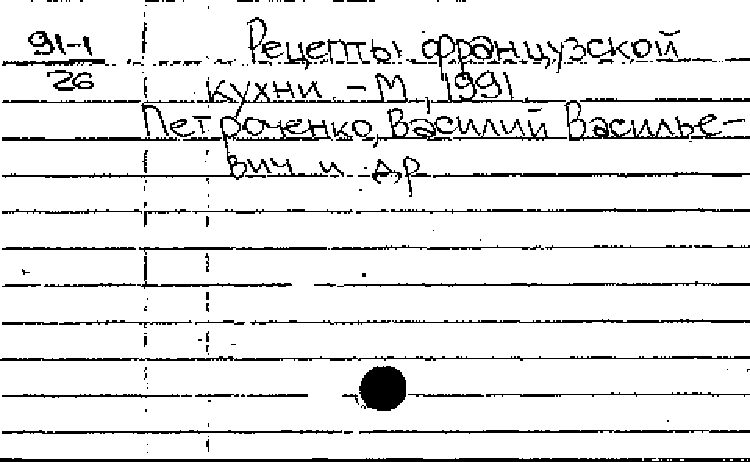 91-1 Рецепты французской
26 кухни. - М, 1991
Петроченко, Василий Василье-
вич и др